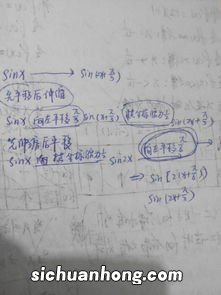 sinx → sin(2x+π/3)
先平移后伸缩
sinx 向左平移π/3 sin(x+π/3) 横坐标缩为½ sin(2x+π/3)
先伸缩后平移
sinx 横坐标缩为½ sin2x 向左平移
⇒ sin[2(x+
sin(2x+π/3)
sichuanhong.com